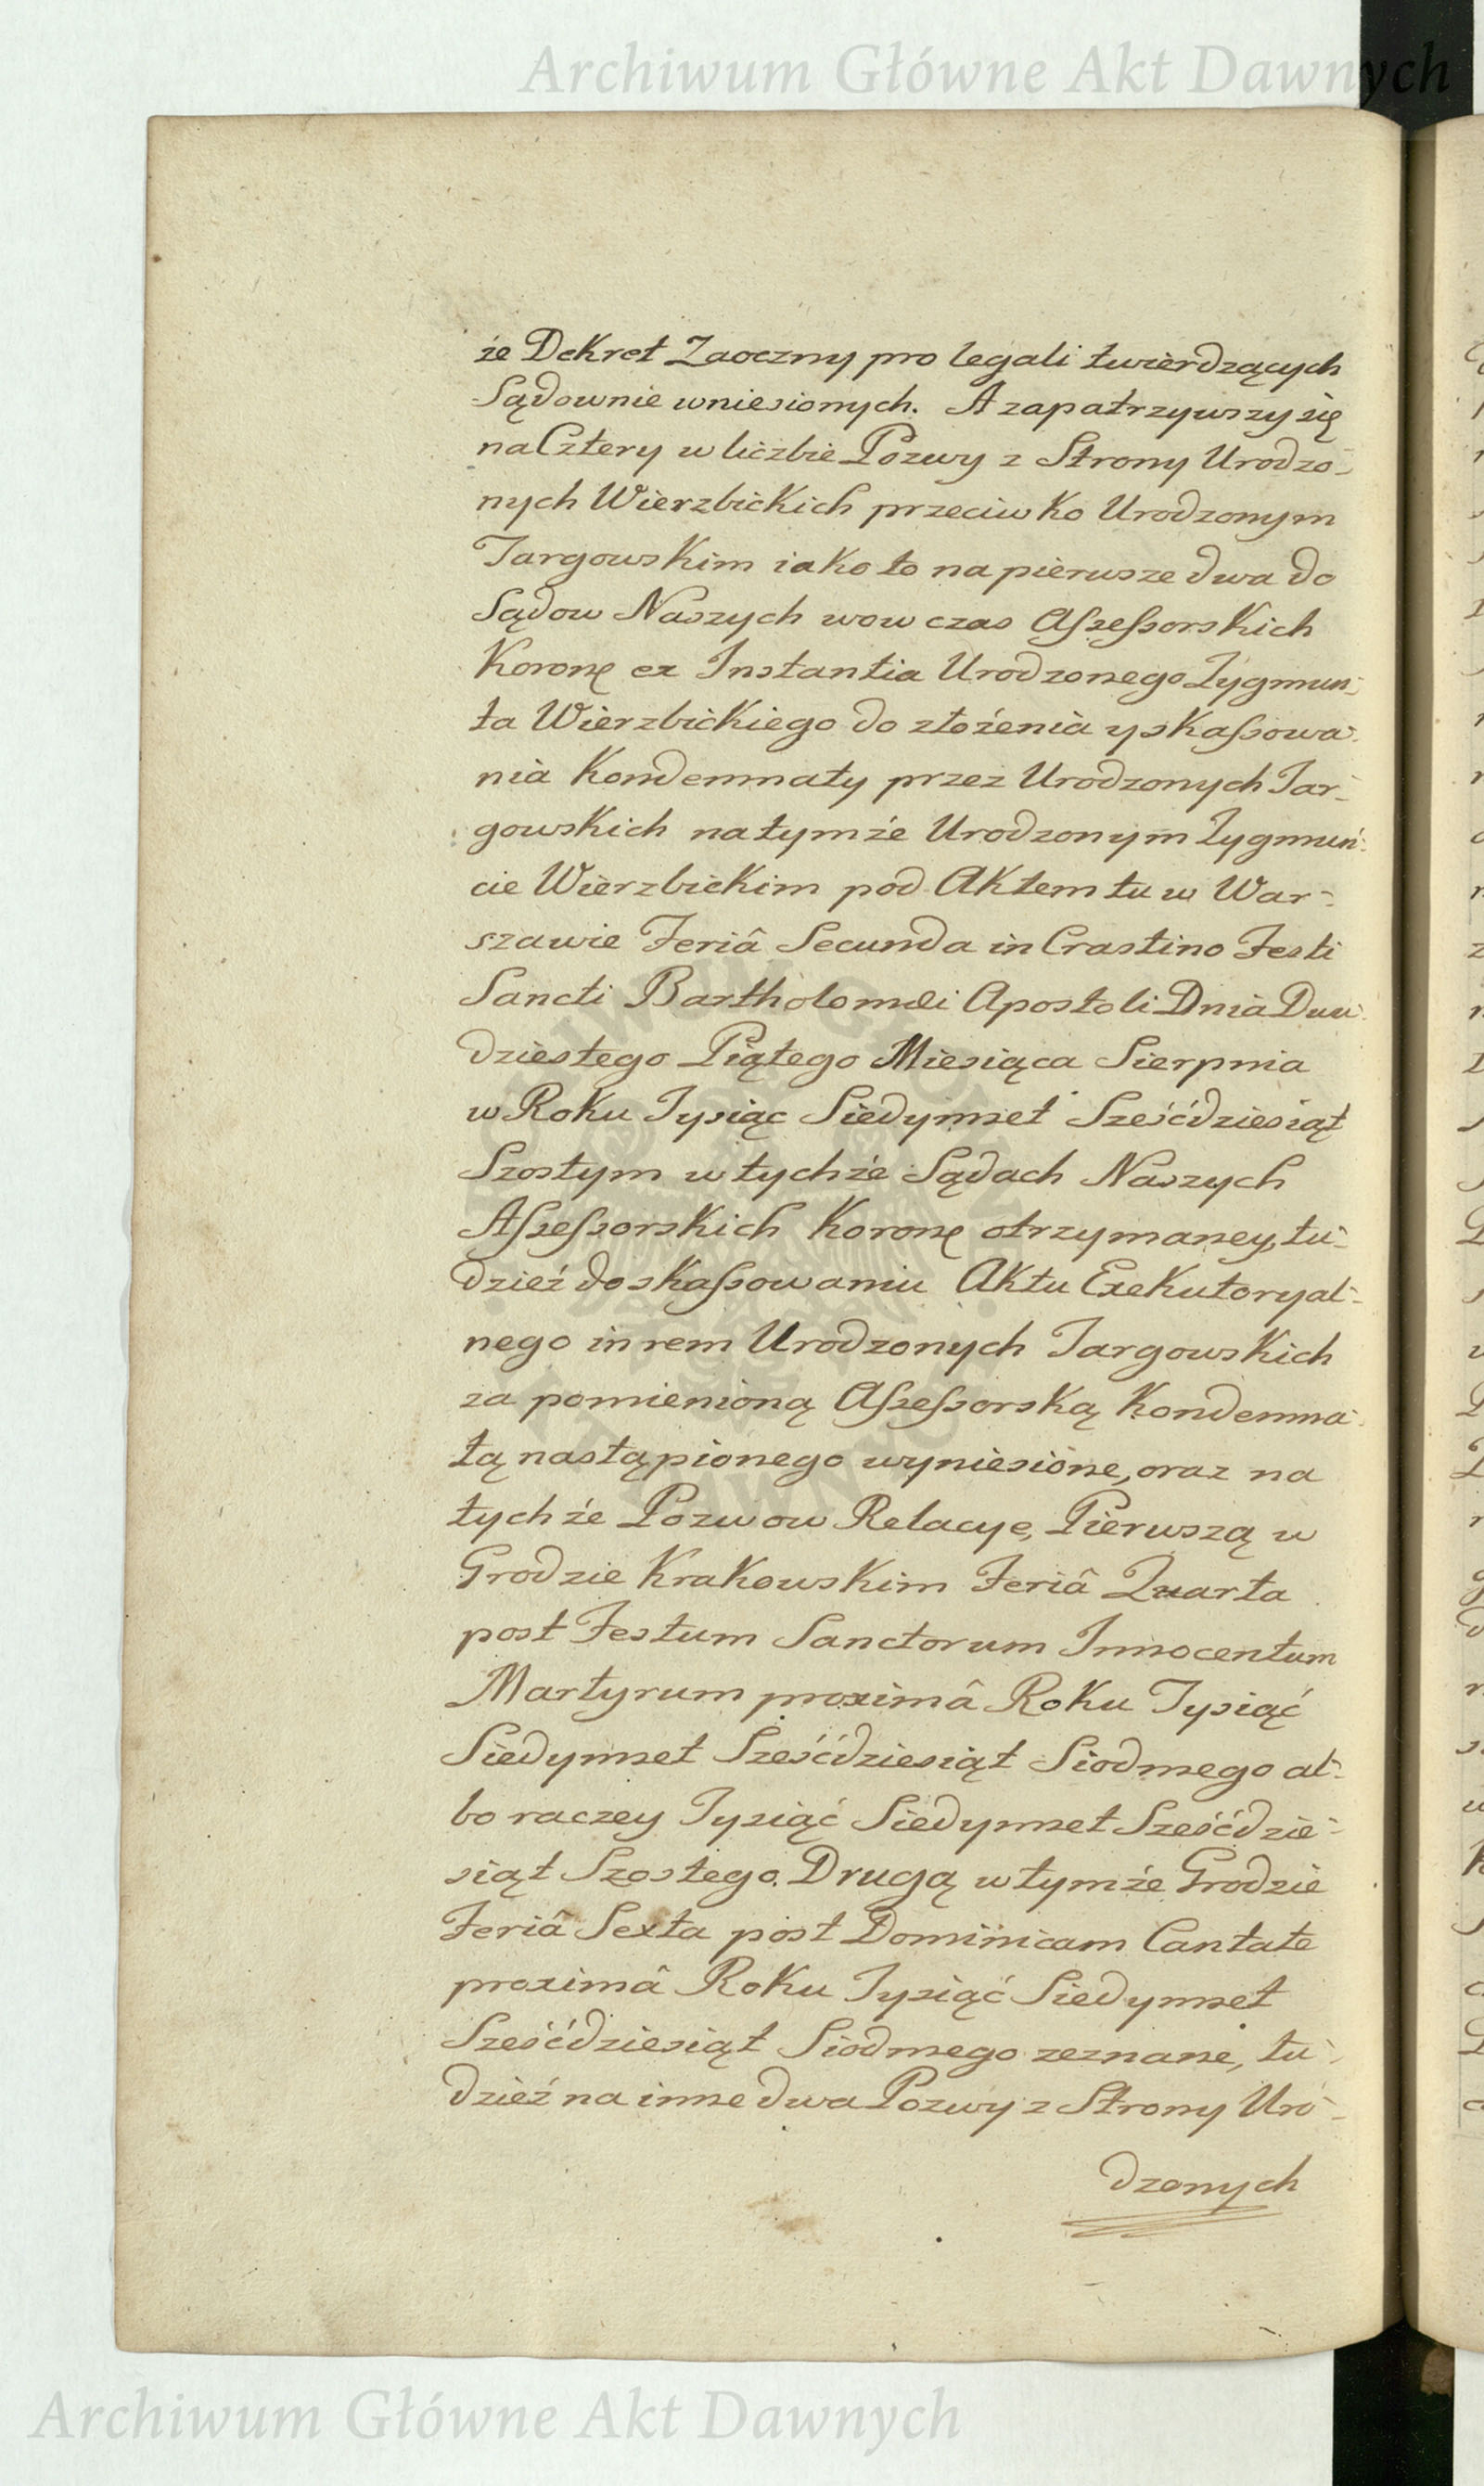 Archiwum Główne Akt Dawnych
że Dekret Zaoczny pro legali twierdzących
Sądownie wniesionych. A zapatrzywszy się
na Cztery w liczbie Pozwy z Strony Urodzo-
nych Wierzbickich przeciwko Urodzonym
Targowskim iako to na pierwsze dwa do
Sądow Naszych wowczas Assessorskich
Koronę ex Instantia Urodzonego Zygmun-
ta Wierzbickiego do złożenia y skassowa-
nia Kondemnaty przez Urodzonych Tar-
gowskich na tymże Urodzonym Zygmun-
cie Wierzbickim pod Aktem tu w War-
szawie Feriâ Secunda in Crastino Festi
Sancti Bartholomæi Apostoli Dnia Dwu-
dziestego Piątego Miesiąca Sierpnia
w Roku Tysiąc Siedymset Sześćdziesiąt
Szostym w tychże Sądach Naszych
Assessorskich Koronę otrzymaney, tu-
dzież do skassowaniu Aktu Exekutoryal-
nego in rem Urodzonych Targowskich
za pomienioną Assessorską Kondemna-
tą nastąpionego wyniesione, oraz na
tychże Pozwow Relacye, Pierwszą w
Grodzie Krakowskim Feriâ Quarta
post Festum Sanctorum Innocentum
Martyrum proximâ Roku Tysiąć
Siedymset Sześćdziesiąt Siodmego al-
bo raczey Tysiąć Siedymset Sześćdzie-
siąt Szostego. Drugą w tymże Grodzie
Feriâ Sexta post Dominicam Cantate
proximâ Roku Tysiąć Siedymset
Sześćdziesiąt Siodmego zeznane, tu-
dzież na inne dwa Pozwy z Strony Uro-
dzonych
Archiwum Główne Akt Dawnych